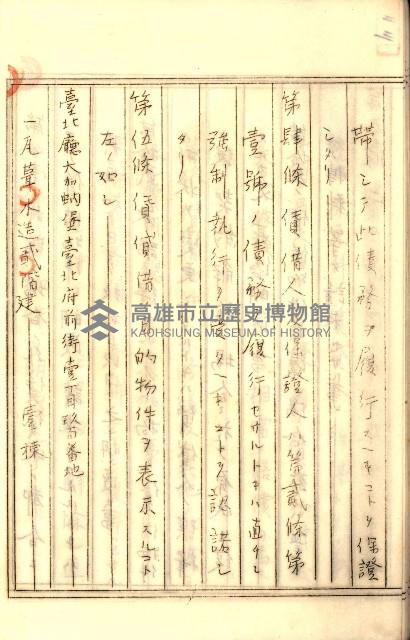 帶シテ此債務ヲ履行スヘキコトヲ保證
シタリ
第肆條 債借人 保證人ハ第貳條第
壹號ノ債務ヲ履行セサルトキハ直チニ
強制執行ヲ受クヘキコトヲ認諾シ
タリ
第伍條 賃貸借ノ目的物件ヲ表示スルコト
左ノ如シ
臺北廳大加蚋堡臺北府前街壹丁目玖番地
一瓦葺木造貳階建 壹棟
高雄市立歷史博物館
KAOHSIUNG MUSEUM OF HISTORY